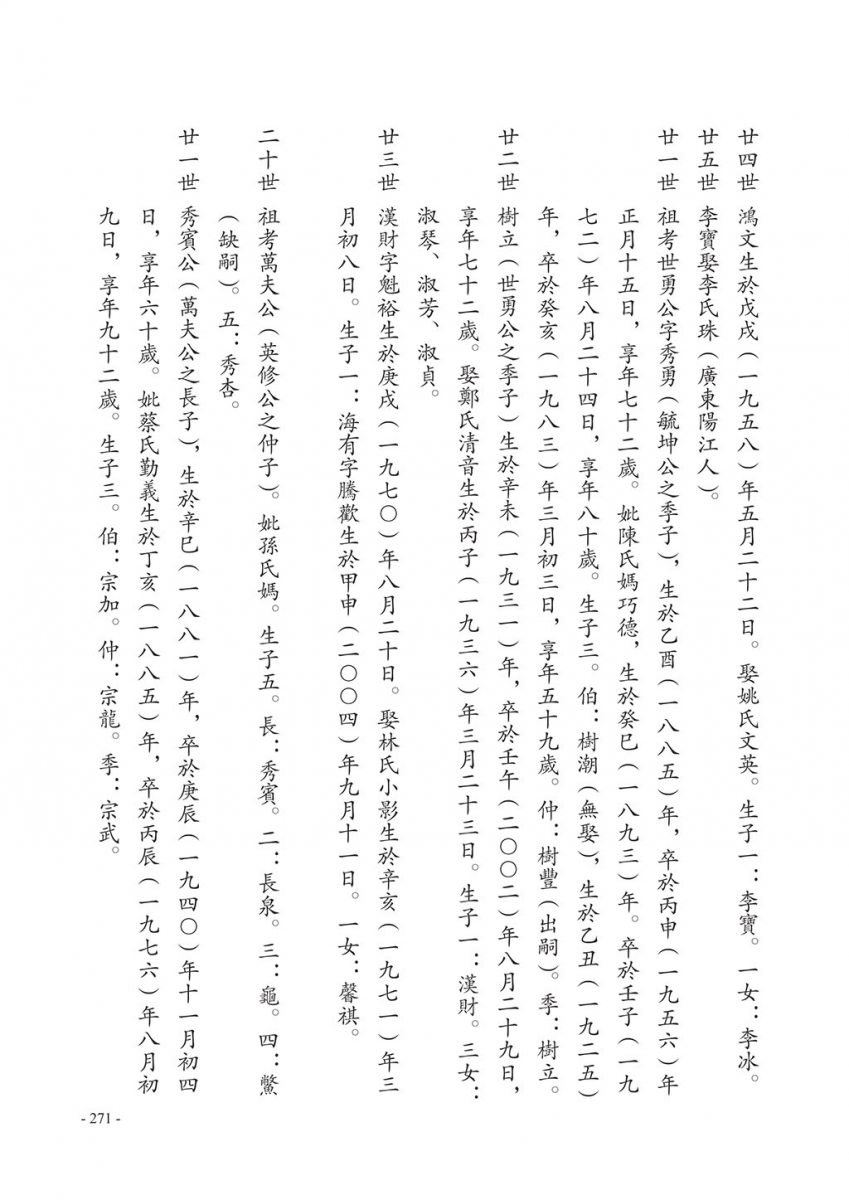 廿四世 鴻文生於戊戌(一九五八)年五月二十二日。娶姚氏文英。生子一:李寶。一女:李冰。
廿五世 李寶娶李氏珠(廣東陽江人)。
廿一世 祖考世勇公字秀勇(毓坤公之季子),生於乙酉(一八八五)年,卒於丙申(一九五六)年
正月十五日,享年七十二歲。妣陳氏媽巧德,生於癸巳(一八九三)年。卒於壬子(一九
七二)年八月二十四日,享年八十歲。生子三。伯:樹潮(無娶),生於乙丑(一九二五)
年,卒於癸亥(一九八三)年三月初三日,享年五十九歲。仲:樹豐(出嗣)。季:樹立。
廿二世 樹立(世勇公之季子)生於辛未(一九三一)年,卒於壬午(二〇〇二)年八月二十九日,
享年七十二歲。娶鄭氏清音生於丙子(一九三六)年三月二十三日。生子一:漢財。三女:
淑琴、淑芳、淑貞。
廿三世 漢財字魁裕生於庚戌(一九七〇)年八月二十日。娶林氏小影生於辛亥(一九七一)年三
月初八日。生子一:海有字騰歡生於甲申(二〇〇四)年九月十一日。一女:馨祺。
二十世 祖考萬夫公(英修公之仲子)。妣孫氏媽。生子五。長:秀賓。二:長泉。三:龜。四:鱉
(缺嗣)。五:秀杏。
廿一世 秀賓公(萬夫公之長子),生於辛巳(一八八一)年,卒於庚辰(一九四〇)年十一月初四
日,享年六十歲。妣蔡氏勤義生於丁亥(一八八五)年,卒於丙辰(一九七六)年八月初
九日,享年九十二歲。生子三。伯:宗加。仲:宗龍。季:宗武。
- 271 -